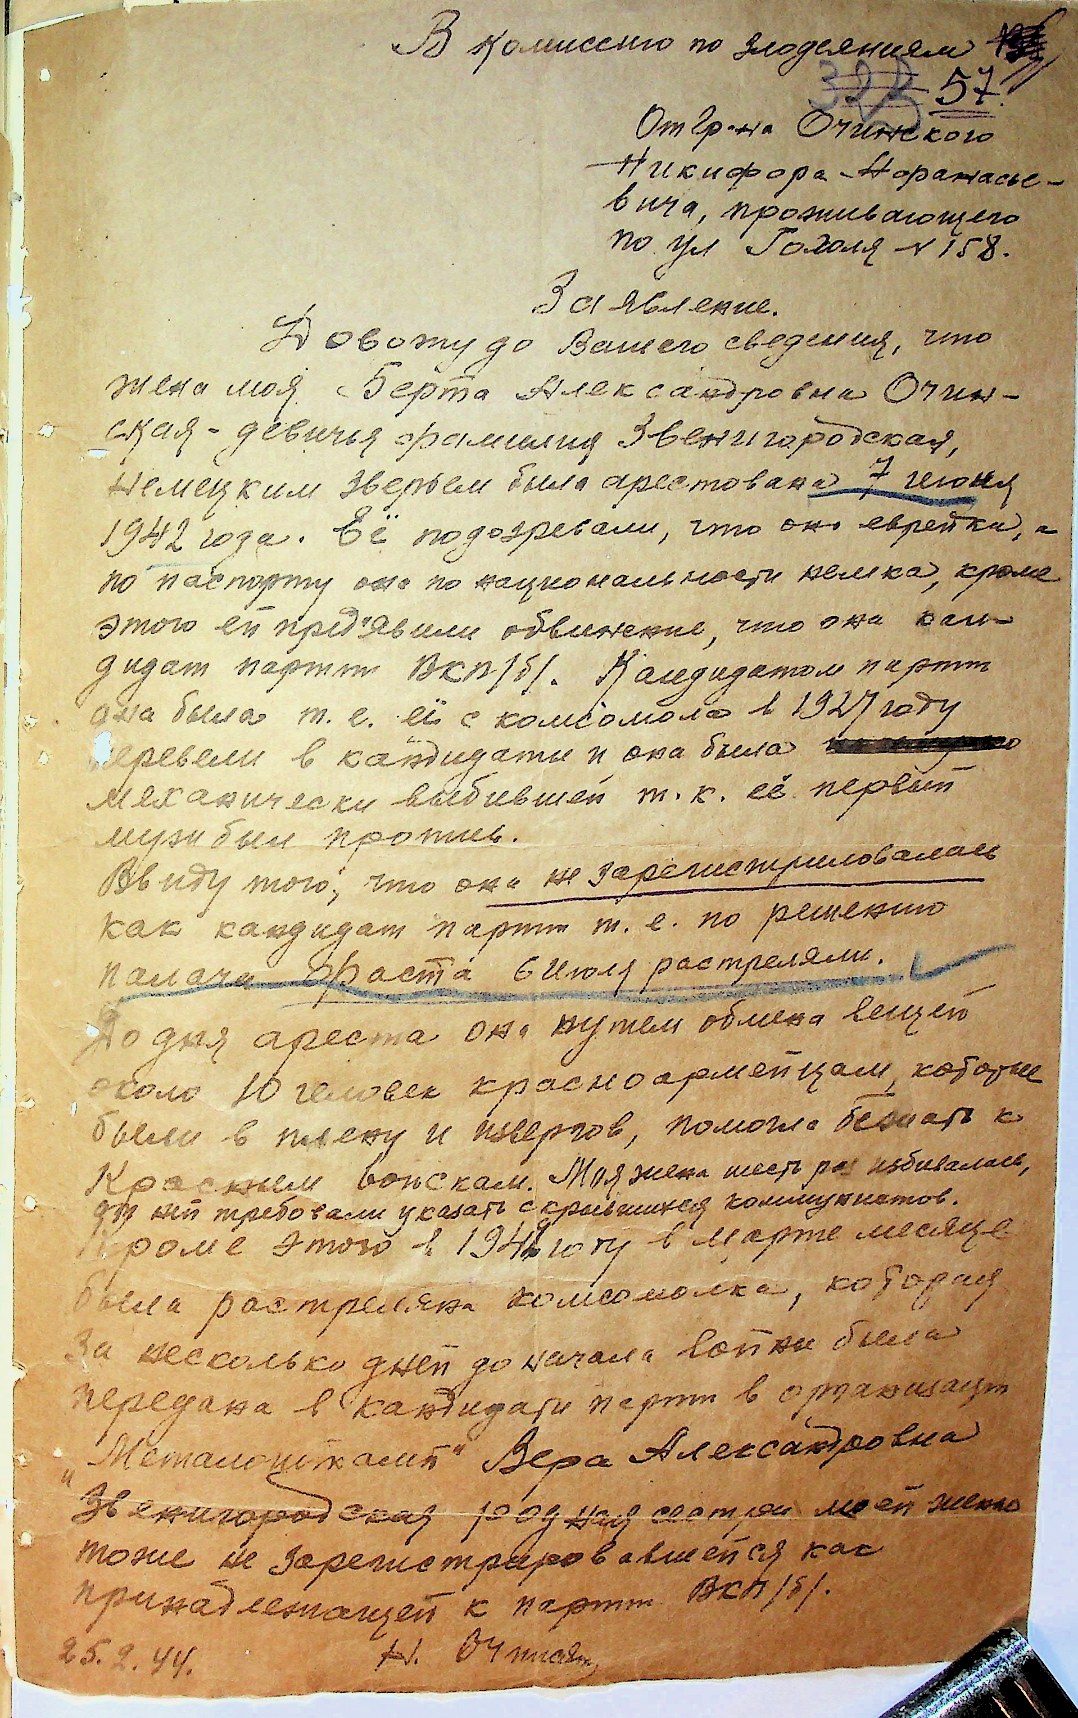 В комиссию по злодеяниям
323 57.
От гр-на Очинского
Никифора Афанасье-
вича, проживающего
по ул Гоголя № 158.
Заявление.
Довожу до Вашего сведения, что
жена моя Берта Александровна Очин-
ская - девичья фамилия Звенигородская,
немецким зверьем была арестована 7 июня
1942 года. Её подозревали, что она еврейка, а
по паспорту она по национальности немка, кроме
этого ей пред'явили обвинение, что она кан-
дидат партии ВКП/б/. Кандидатом партии
она была т.е. её с комсомола в 1927 году
перевели в кандидаты и она была
механически выбившей т.к. её первый
муж был против.
Ввиду того, что она не зарегистрировалась
как кандидат партии т.е. по решению
палача Фаста 6 июля растреляли.
До дня ареста она путем обмена вещей
около 10 человек красноармейцам, которые
были в плену и , помогла бежать к
Красным войскам. Моя жена шесть раз избивалась,
от ней требовали указать скрывшихся коммунистов.
Кроме этого в 1942 году в марте месяце
была растреляна комсомолка, которая
за несколько дней до начала войны была
передана в кандидаты партии в организации
"Металоштамп" Вера Александровна
Звенигородская родная сестра моей жены
тоже не зарегистрировавшейся как
принадлежащей к партии ВКП/б/.
25.2.44. Н. Очинский